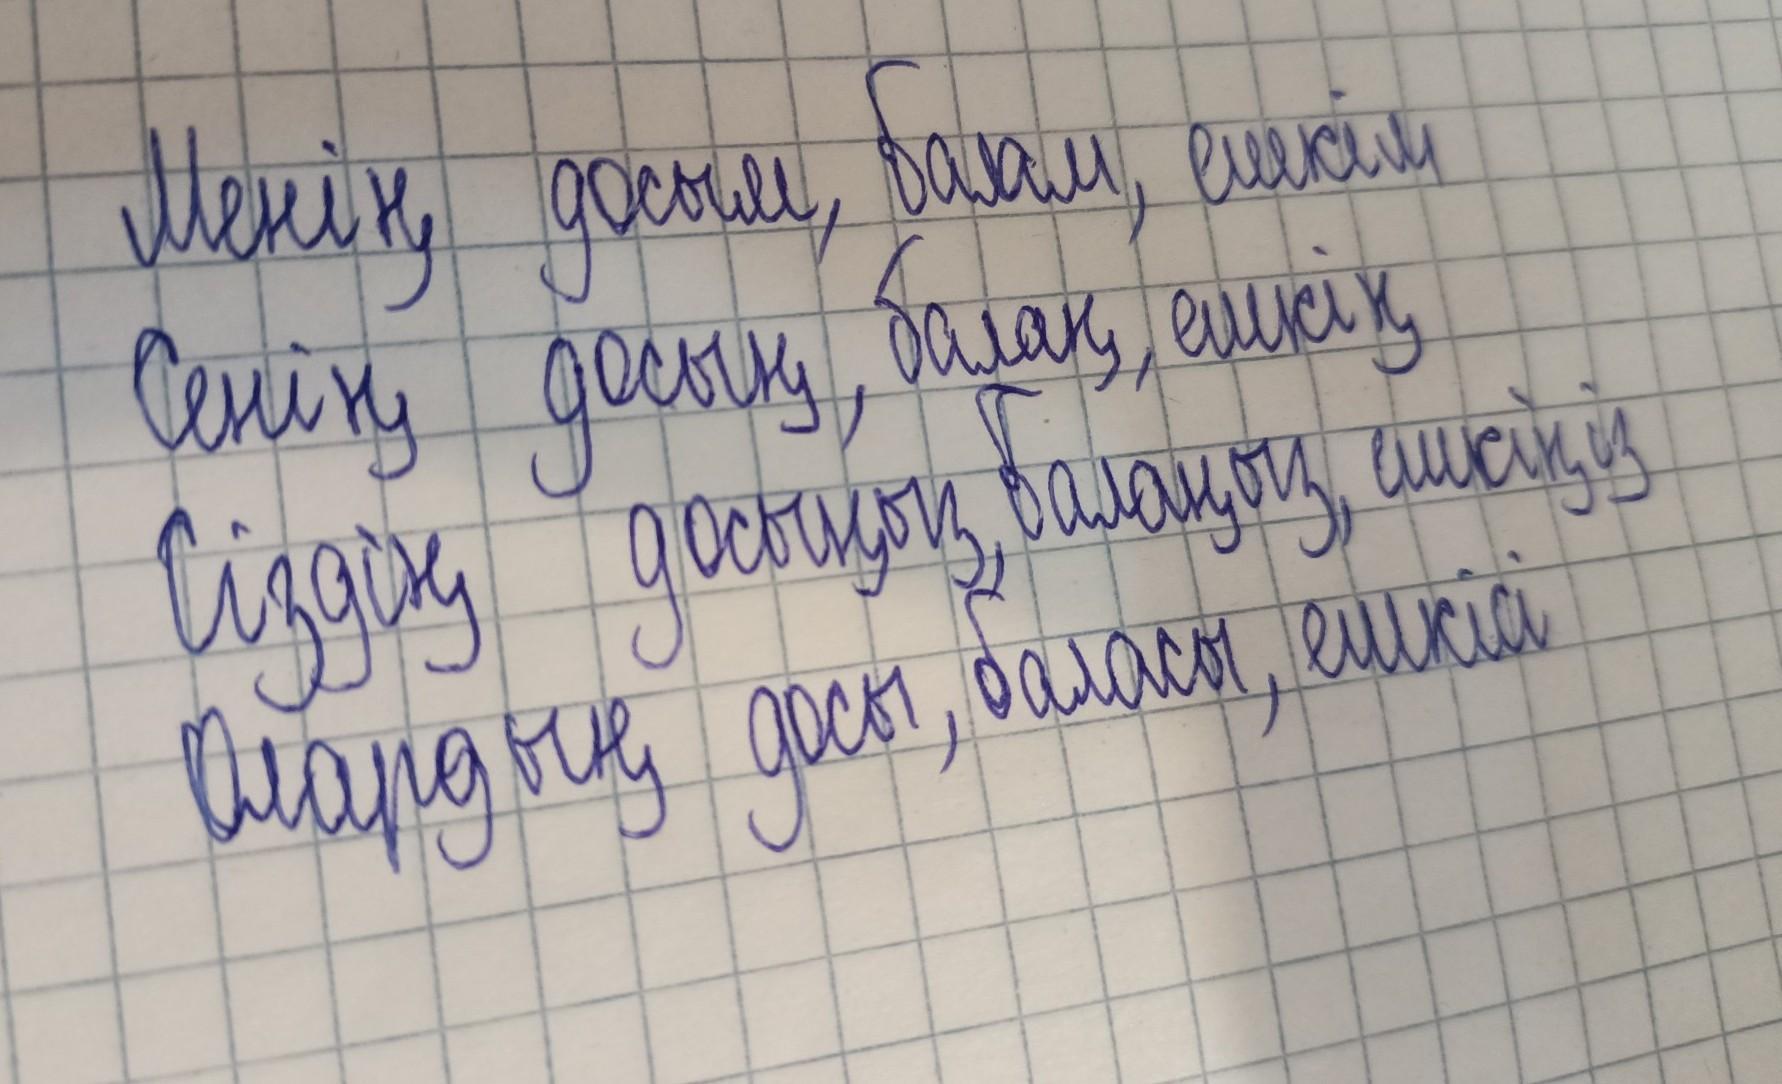 Менің досым, балам, ешкім
Сенің досың, балаң, ешкің
Сіздің досыңыз, балаңыз, ешкіңіз
Олардың досы, баласы, ешкісі